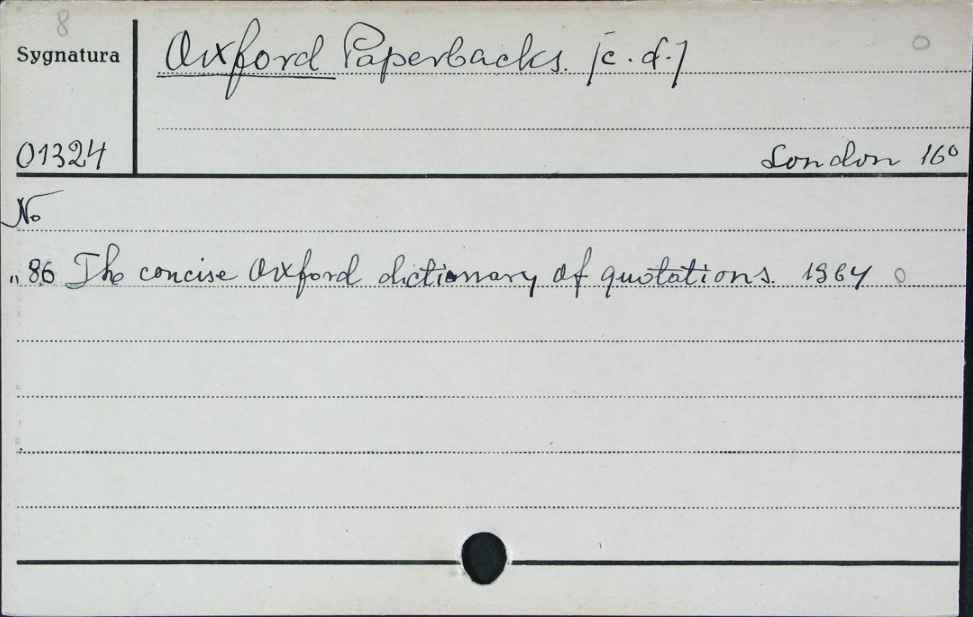 8
Sygnatura
Oxford Paperbacks. [c.d.]
01324
London 16°
No
„ 86 The concise Oxford dictionary of quotations. 1964